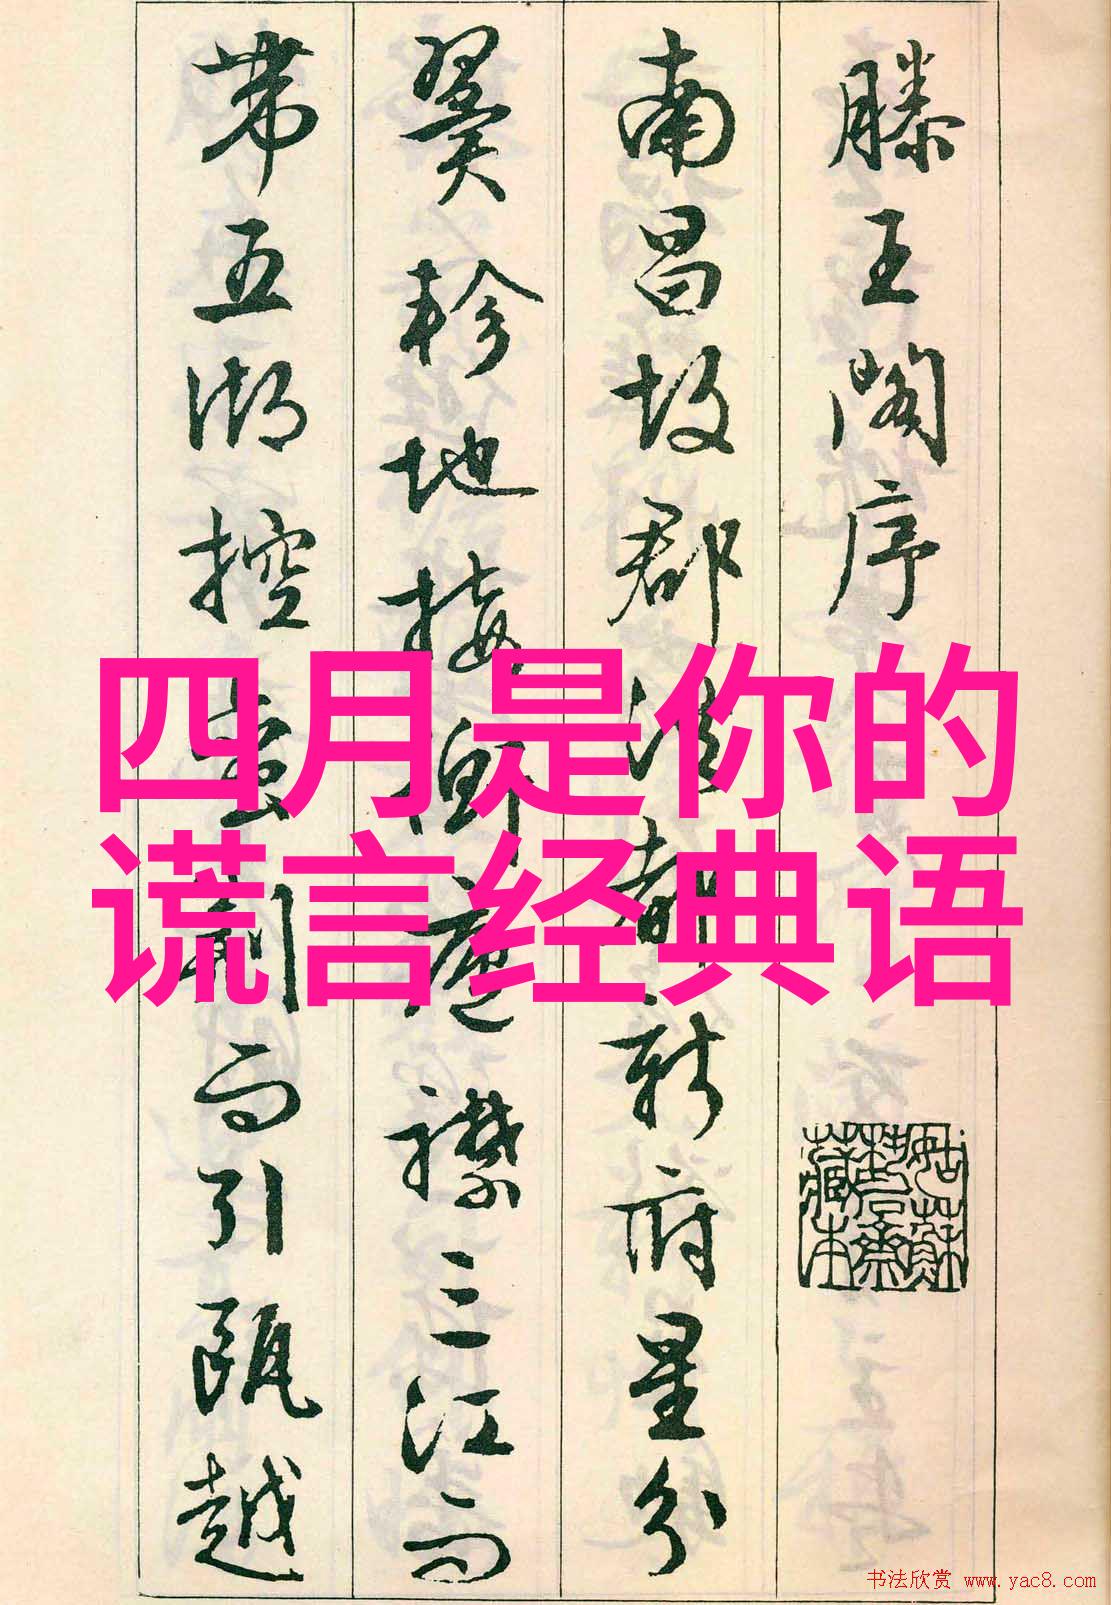 滕王阁序
南昌故郡洪都新府星分
翼轸地接衡庐襟三江而
带五湖控蛮荆而引瓯越
四月是你的
谎言经典语
书法欣赏 www.yac8.com